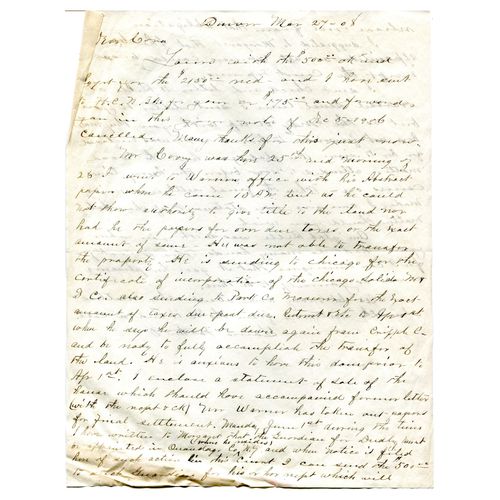 Denver Mar 27-08
Mr Cory
Yours with the $500.00 ok and
for the $2150.00 recd and I have sent
to H.C. for you $175.00 and forward
you in this note of Dec 8-1906
cancelled. Many thanks for this just now.
Mr Cory was here 25th and morning of
26th went to Warners office with his Abstract
papers when he came 10 AM but as he could
not show authority to give title to the land nor
had he the papers for over due taxes or the exact
amount of same. He was not able to transfer
the property. He is sending to Chicago for the
certificate of incorporation of the Chicago Salida M
& Co. also sending to Park Co Treasurer for the exact
amount of taxes due & past due. to Apr 1st
when he says he will be down again from Cripple Cr
and be ready to fully accomplish the transfer of
the land. He is anxious to have this done prior to
Apr 1st. I enclose a statement of sale of the
house which should have accompanied former letter
(with the rcpt & ck) Mr Warner has taken out papers
for Final settlement. Monday June 1st during the time
I have written to Morgan that the Guardian for Dudley must
be appointed in Co Ky (where he resides) and when notice is filed
here of such action in this Court I can send the $500.00
to such Guardian for his or her rcpt which will